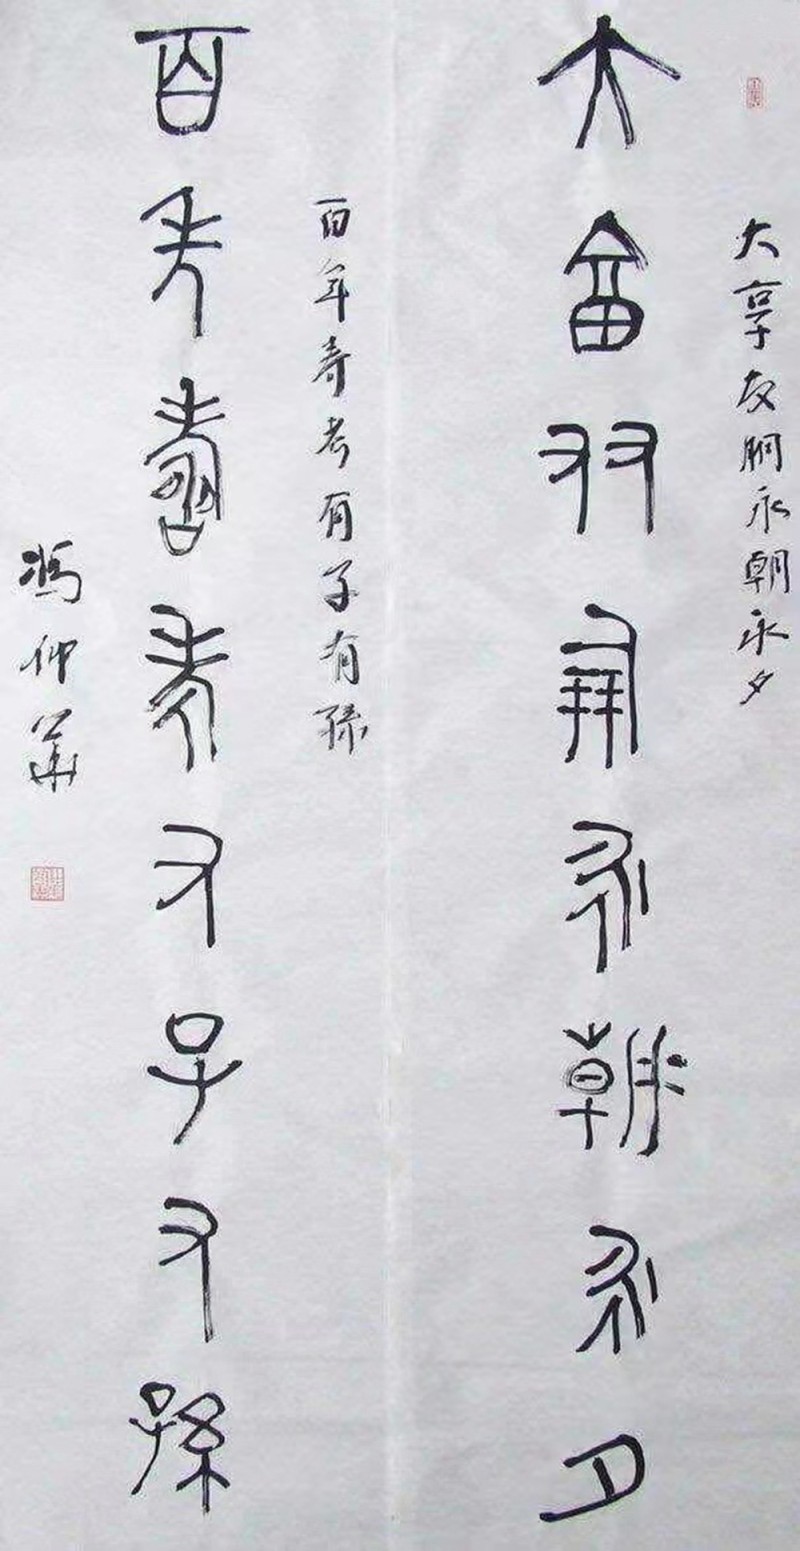 大享友朋永朝永夕
大享友朋永朝永夕
百年寿考有子有孫
百年壽考又子又孫
馮仲華